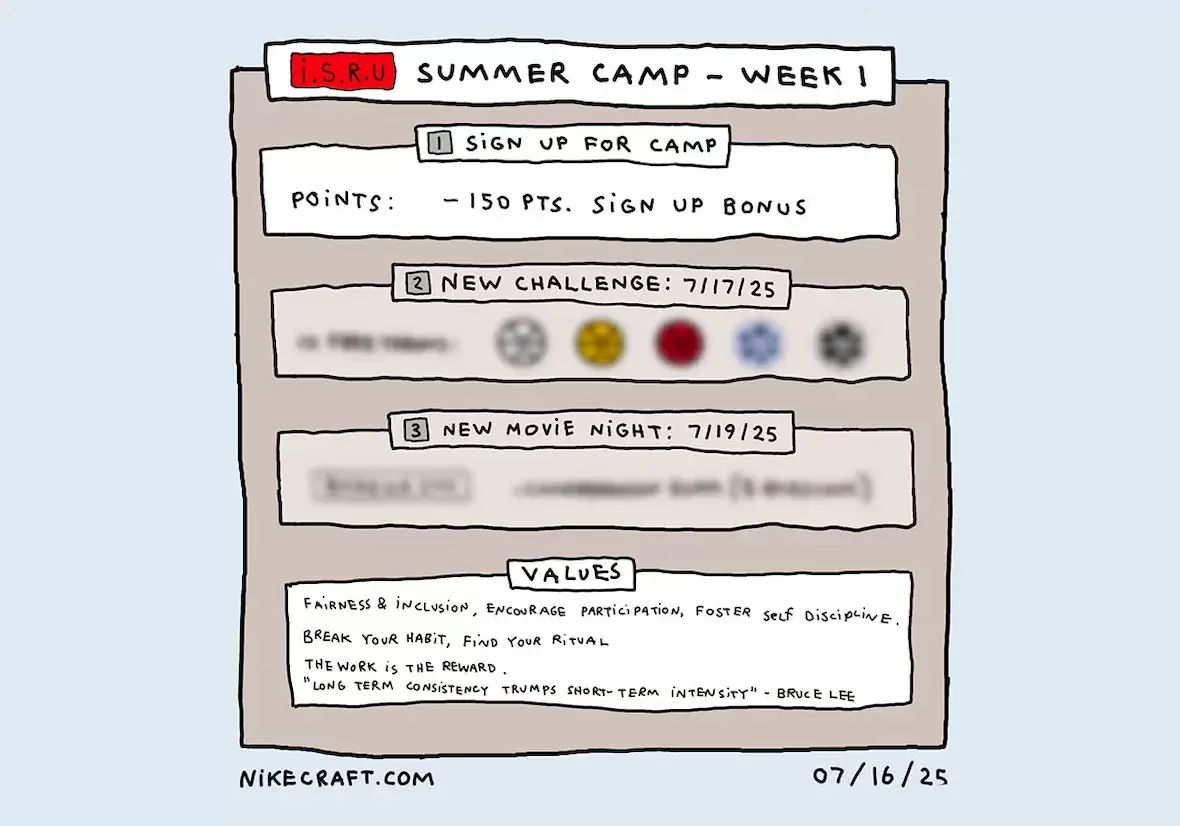 i.S.R.U SUMMER CAMP - WEEK 1
1 SiGN UP FOR CAMP
POiNTS: - 150 PTS. SiGN UP BONUS
2 NEW CHALLENGE: 7/17/25
3 NEW MOViE NiGHT: 7/19/25
VALUES
FAiRNESS & iNCLUSiON, ENCOURAGE PARTiCiPATiON, FOSTER SELF DiSCiPLiNE.
BREAK YOUR HABiT, FiND YOUR RiTUAL
THE WORK iS THE REWARD.
"LONG TERM CONSiSTENCY TRUMPS SHORT-TERM iNTENSiTY" - BRUCE LEE
NiKECRAFT.COM 07/16/25